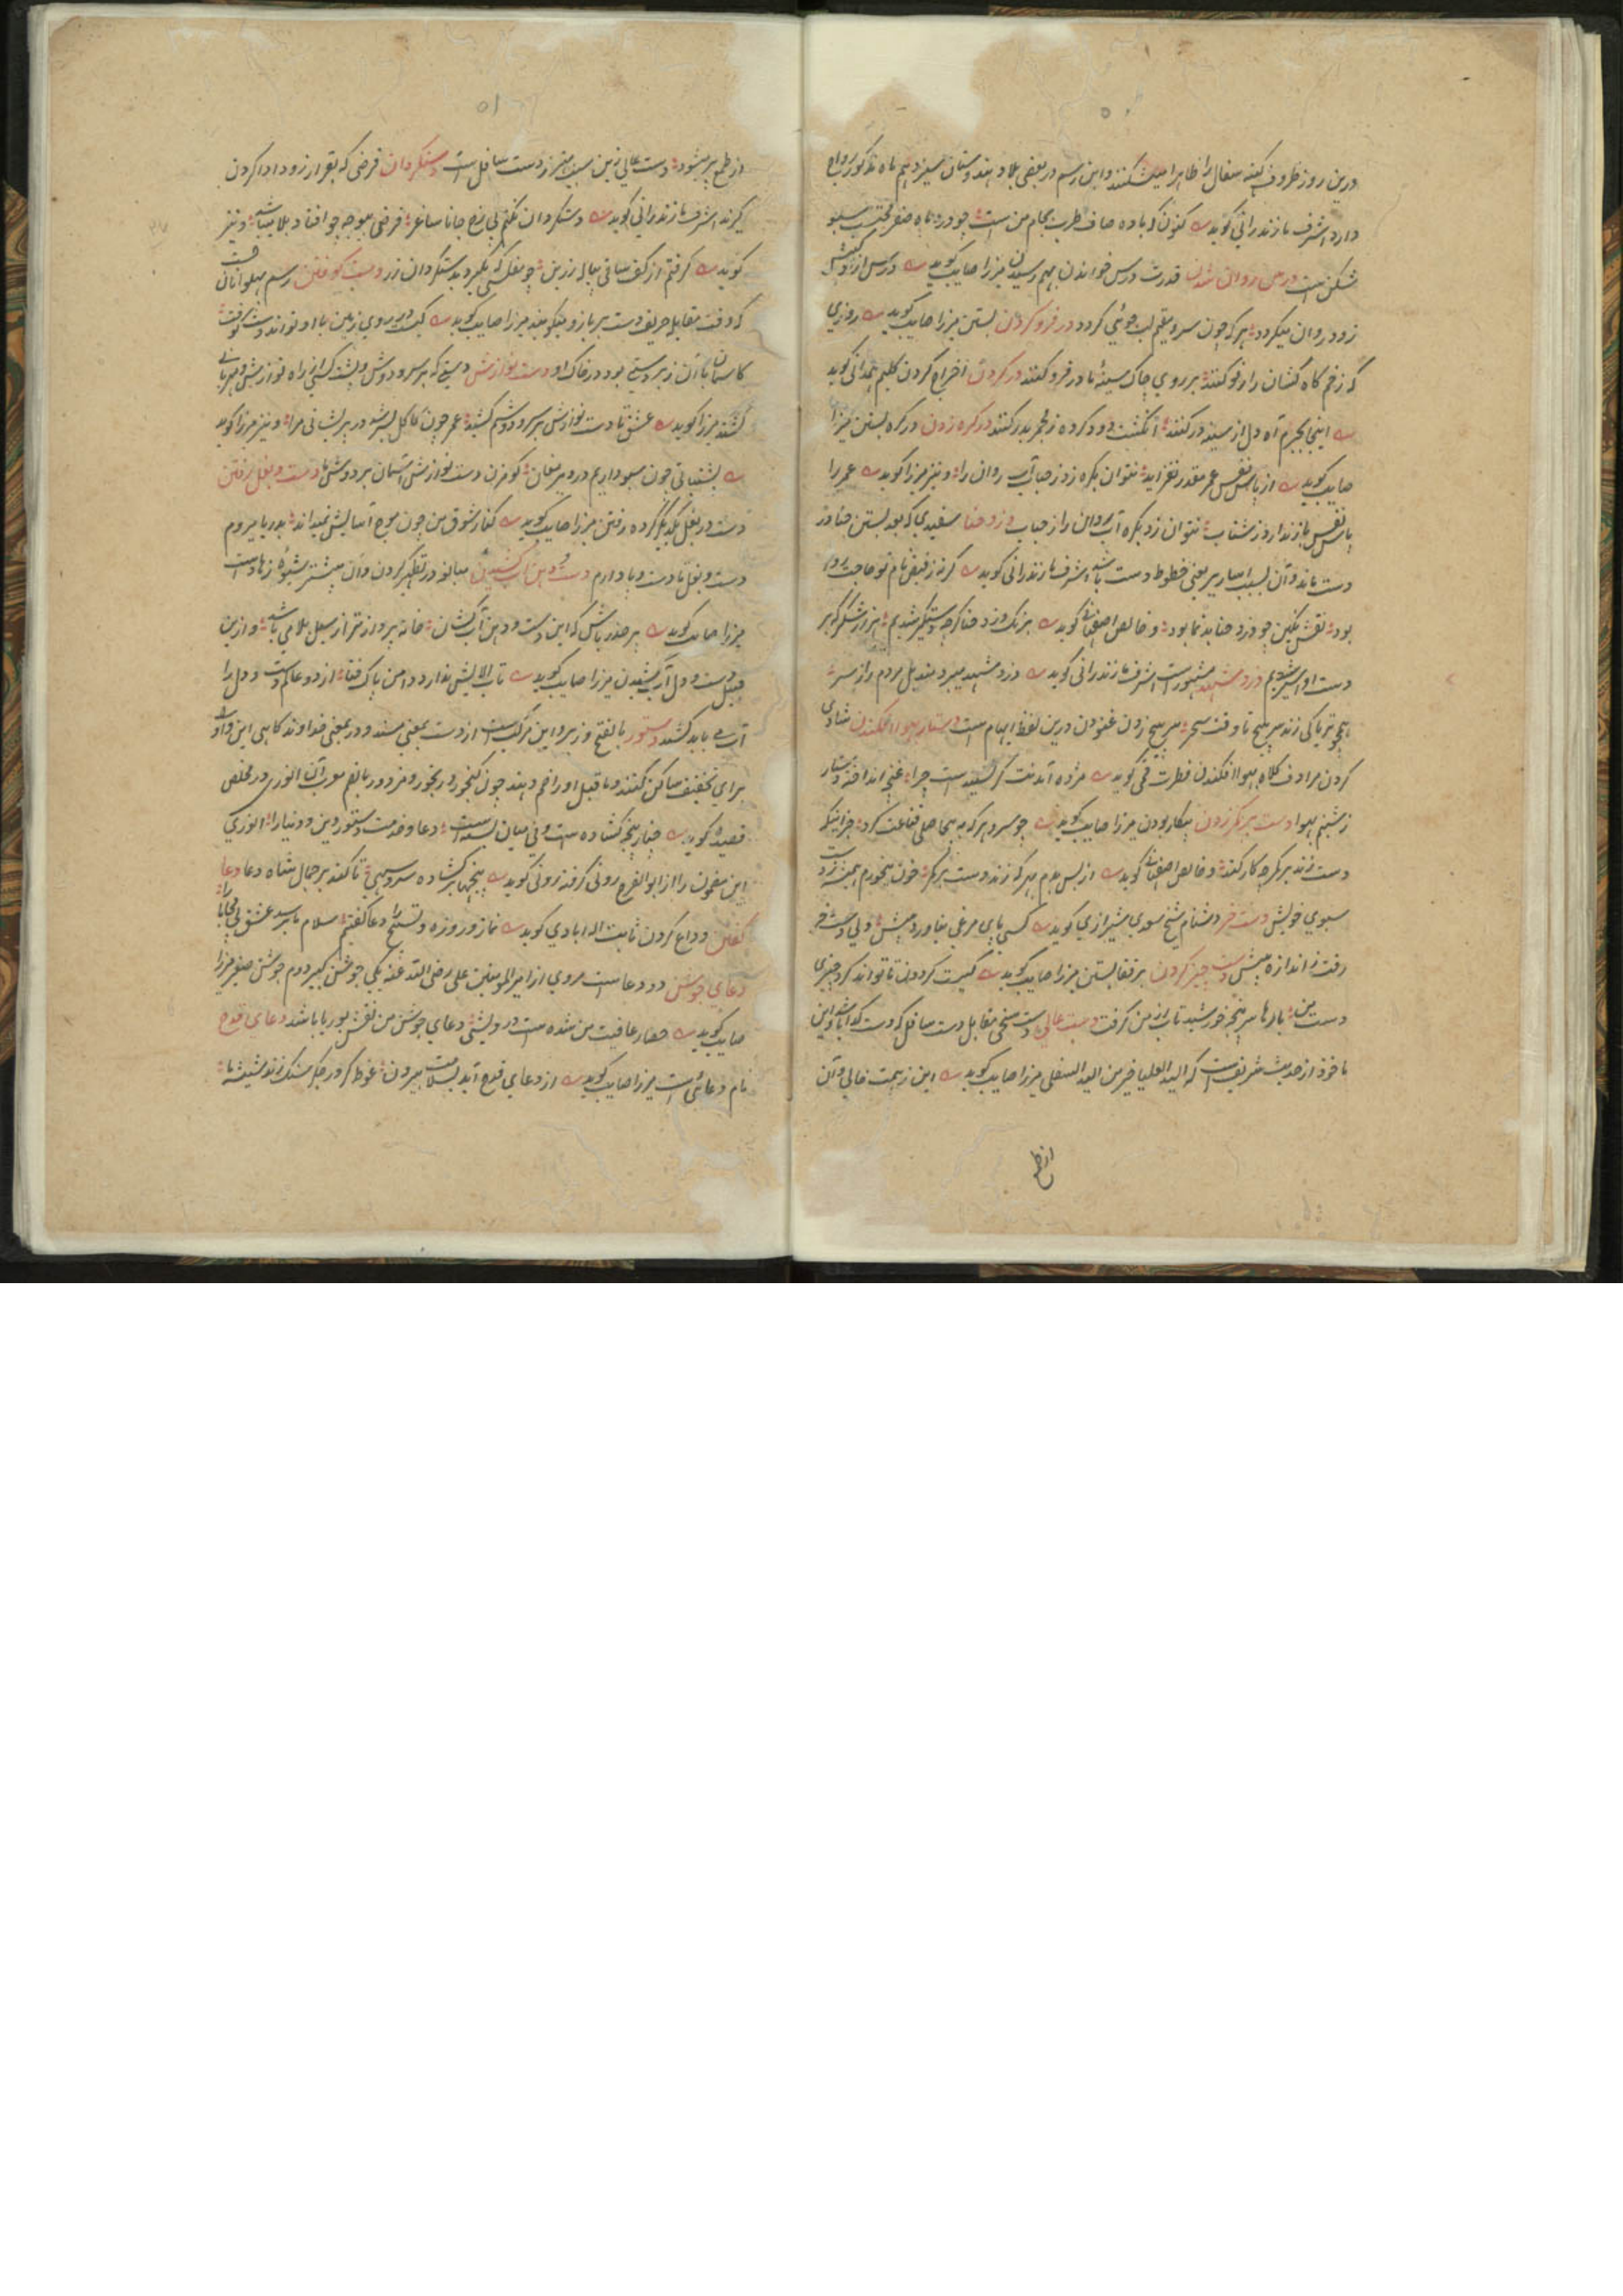 ۵۰
درین روز ظروف کهنه سفال را ظاهرا میشکنند و این رسم در بعضی بلاد هندوستان سیزدهم ماه مذکور رواج
دارد اشرف مازندرانی گوید کنون که باده صاف طرب بجام من است چو در ماه صفر محتسب سبو
شکن است درس روان شدن قدرت درس خواندن بهم رسیدن میرزا صایب گوید درس از
زود روان میگردد هر که چون سرو مقیم لب جوئی گردد در فرو کردن بستن میرزا صایب گوید روزی
که زخم کاه کشان را رفو کنند بر روی چاک سینهٔ ما در فرو کنند در کردن اخراج کردن کلیم همدانی گوید
آه دل از سینه در کنند انگشت دود کرده ز مجمر بدر کنند در گره زدن در گره بستن میرزا
صایب گوید از پاس نفس عمر مقدر نفزاید نتوان بگره زد ز حباب آب روان را و نیز میرزا گوید عمر را
پاس نفس باز ندارد ز شتاب نتوان زد بگره آب روان را ز حباب دزد حنا سفیدی که بعد بستن حنا در
دست ماند و آن بسبب اساریر یعنی خطوط دست باشد اشرف مازندرانی گوید گر نه ز فیض نام تو حاجت روا
بود نقش نگین چو دزد حنا بدنما بود و خالص اصفهانی گوید برنگ دزد حنا گرچه دستگیر شدیم هزار شکر که بر
دست او اسیر شدیم دزد مشهد مشهور است اشرف مازندرانی گوید دزد مشهد میبرد مندیل مردم را ز سر
همچو تریاکی زند سر پیچ تا وقت سحر سر پیچ زدن غنودن درین لفظ ایهام است دستار بهوا افکندن شادی
کردن مرادف کلاه بهوا افکندن فطرت قمی گوید مژده آمدنت گر نشنیدست چرا غنچه انداخته دستار
ز شبنم بهوا دست بر کمر زدن بیکار بودن میرزا صایب گوید چو سرو هر که به بیحاصلی قناعت کرد جز اینکه
دست زند بر کمر چه کار کند و خالص اصفهانی گوید از بس بدم بهر که زند دست بر کمر خون میخورم همیشه ز دست
سبوی خویش دست خر دشنام شیخ سعدی شیرازی گوید کسی پای مرغی نیاورد پیش ولی دست خر
رفت ز اندازه بیش دست چیز کردن بر قفا بستن میرزا صایب گوید کیست گردون تا تواند کرد چیزی
دست من بارها سر پنجه خورشید تاب از من گرفت دست عالی دست سخی مقابل دست سافل که دست گدا باشد و این
ماخوذ از حدیث شریف است که الید العلیا خیر من الید السفلی میرزا صایب گوید این ز همت خالی و آن
از طمع
۵۱
از طمع پر میشود دست عالی زین سبب بهتر ز دست سافل است دستگردان قرضی که بقرار زود ادا کردن
گیرند اشرف مازندرانی گوید دستگردان نکنم بی رخ جانا ساغر قرضی بیوجه چو افتاد بلا میباشد و نیز
گوید گرفتم از کف ساقی پیاله زرین چو مفلسی که بگیرد بدستگردان زر دست کوفتن رسم پهلوانان است
که وقت مقابله حریف دست بر بازو میکوبند میرزا صایب گوید کیست در روی زمین با او تواند دست کوفت
کاسمان با آن زبردستی بود در خاک او دست نوازش دستی که بر سر و دوش و پشت کسی از راه نوازش و مهربانی
کشند میرزا گوید عشق تا دست نوازش بر سر و دوشم کشید عمر چون کاکل بسر شد در پریشانی مرا و نیز میرزا گوید
پشتیبانی چون سبو داریم در دیر مغان گو مزن دست نوازش آسمان بر دوش ما دست و بغل رفتن
دست در بغل یکدیگر کرده رفتن میرزا صایب گوید کنار شوق من چون موج آسایش نمیداند بدریا میروم
دست و بغل تا دست و پا دارم دست و دهن آب کشیدن مبالغه در تطهیر کردن و آن بیشتر شیوهٔ زهاد است
میرزا صایب گوید بر حذر باش که این دست و دهن آب کشان خانه پرداز تر از سیل بلا می باشند و ازین
قبیل دست و دل آب کشیدن میرزا صایب گوید تاب الایش ندارد دامن پاک فنا از دو عالم دست و دل را
آب می باید کشید دستور بالفتح وزیر و این مرکب است از دست بمعنی مسند و ور بمعنی خداوند گاهی این واو را
برای تخفیف ساکن کنند و ما قبل او را ضم دهند چون گنجور و رنجور و مزدور بالضم معرب آن انوری در مخلص
قصیده گوید چنار پنجه گشاده ست و نی میان بسته است دعا و خدمت دستور دین و دنیا را انوری
این مضمون را از ابوالفرج رونی گرفته رونی گوید پنجها بر گشاده سرو سهی تا کند بر جمال شاه دعا دعا
گفتن وداع کردن ثابت اله ابادی گوید نماز و روزه و تسبیح را دعا گفتیم سلام ما برسد عشق بی محابا را
دعای جوشن دو دعا است مروی از امیر المومنین علی رضی الله عنه یکی جوشن کبیر دوم جوشن صغیر میرزا
صایب گوید حصار عافیت من شده ست درویشی دعای جوشن من نقش بوریا باشد دعای قدح
نام دعائی است میرزا صایب گوید از دعای قدح آید بسلامت بیرون غوطه گر در جگر سنک زند شیشهٔ ما